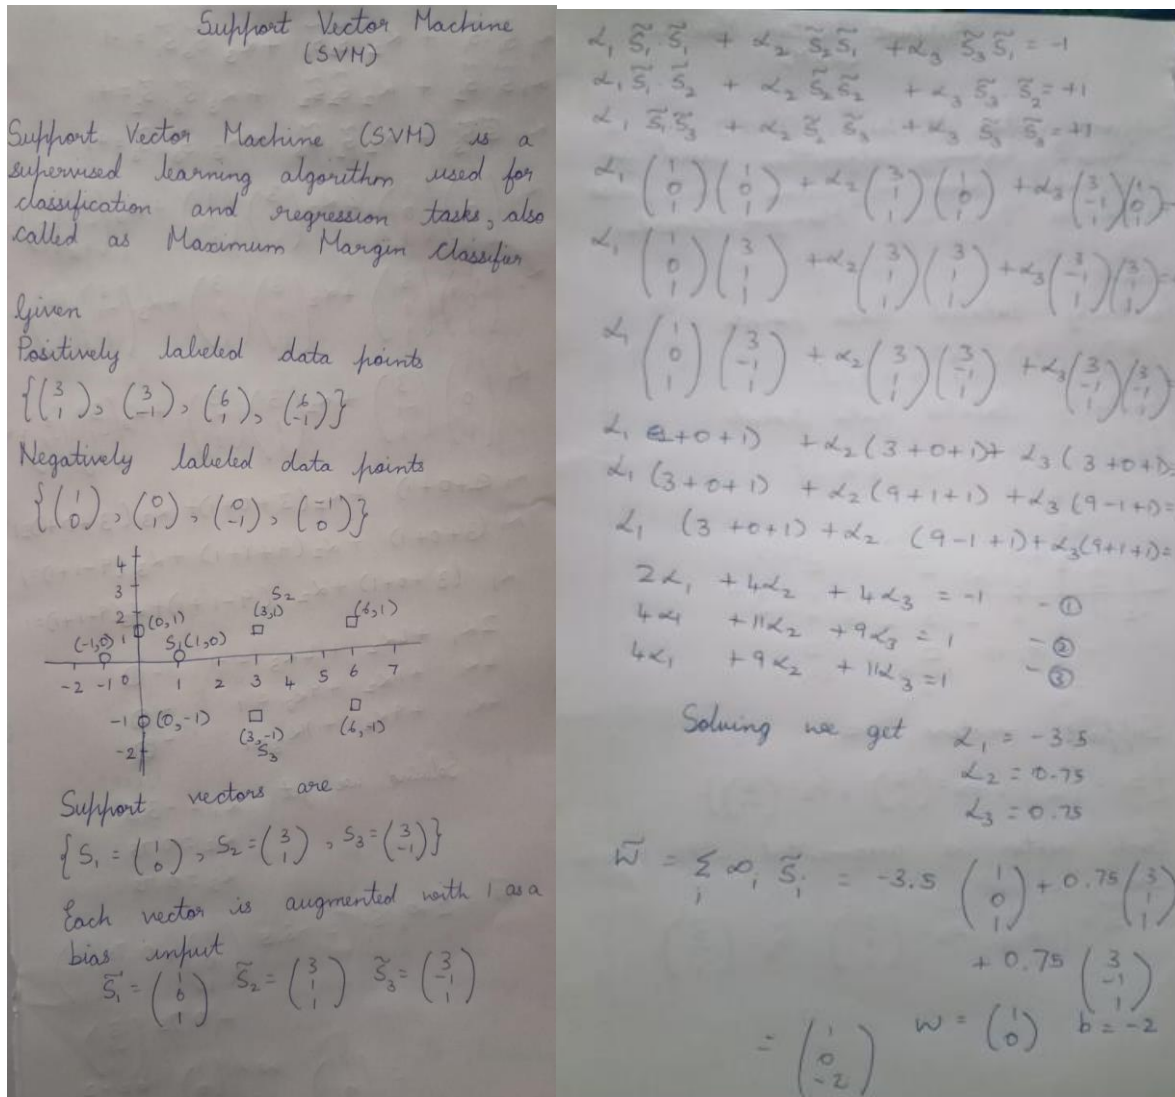 Support Vector Machine
(SVM)
Support Vector Machine (SVM) is a
supervised learning algorithm used for
classification and regression tasks, also
called as Maximum Margin Classifier
Given
Positively labeled data points
{(3 1), (3 -1), (6 1), (6 -1)}
Negatively labeled data points
{(1 0), (0 1), (0 -1), (-1 0)}
4
3
2
1
S2
(0,1)
(3,1)
(6,1)
(-1,0)
S1(1,0)
-2 -1 0 1 2 3 4 5 6 7
-1
(0,-1)
(3,-1)
(6,-1)
S3
-2
Support vectors are
{S1 = (1 0), S2 = (3 1), S3 = (3 -1)}
Each vector is augmented with 1 as a
bias input
S̃1 = (1 0 1) S̃2 = (3 1 1) S̃3 = (3 -1 1)
α1 S̃1 S̃1 + α2 S̃2 S̃1 + α3 S̃3 S̃1 = -1
α1 S̃1 S̃2 + α2 S̃2 S̃2 + α3 S̃3 S̃2 = +1
α1 S̃1 S̃3 + α2 S̃2 S̃3 + α3 S̃3 S̃3 = +1
α1 (1 0 1) (1 0 1) + α2 (3 1 1) (1 0 1) + α3 (3 -1 1) (1 0 1) =
α1 (1 0 1) (3 1 1) + α2 (3 1 1) (3 1 1) + α3 (3 -1 1) (3 1 1) =
α1 (1 0 1) (3 -1 1) + α2 (3 1 1) (3 -1 1) + α3 (3 -1 1) (3 -1 1) =
α1 +0+1) + α2 (3+0+1)+ α3 (3+0+1)=
α1 (3+0+1) + α2 (9+1+1) + α3 (9-1+1)=
α1 (3+0+1) + α2 (9-1+1) + α3(9+1+1)=
2α1 + 4α2 + 4α3 = -1 - ①
4α1 + 11α2 + 9α3 = 1 - ②
4α1 + 9α2 + 11α3 = 1 - ③
Solving we get α1 = -3.5
α2 = 0.75
α3 = 0.75
w̃ = Σi ∞i S̃i = -3.5 (1 0 1) + 0.75 (3 1 1)
+ 0.75 (3 -1 1)
= (1 0 -2) w = (1 0) b = -2